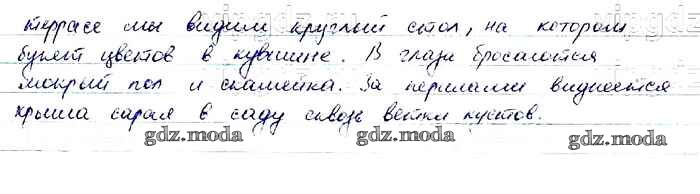 террасе мы видим круглый стол, на котором
букет цветов в кувшине. В глаза бросаются
мокрый пол и скамейка. За перилами виднеется
крыша сарая в саду сквозь ветки кустов.
gdz.moda gdz.moda gdz.moda